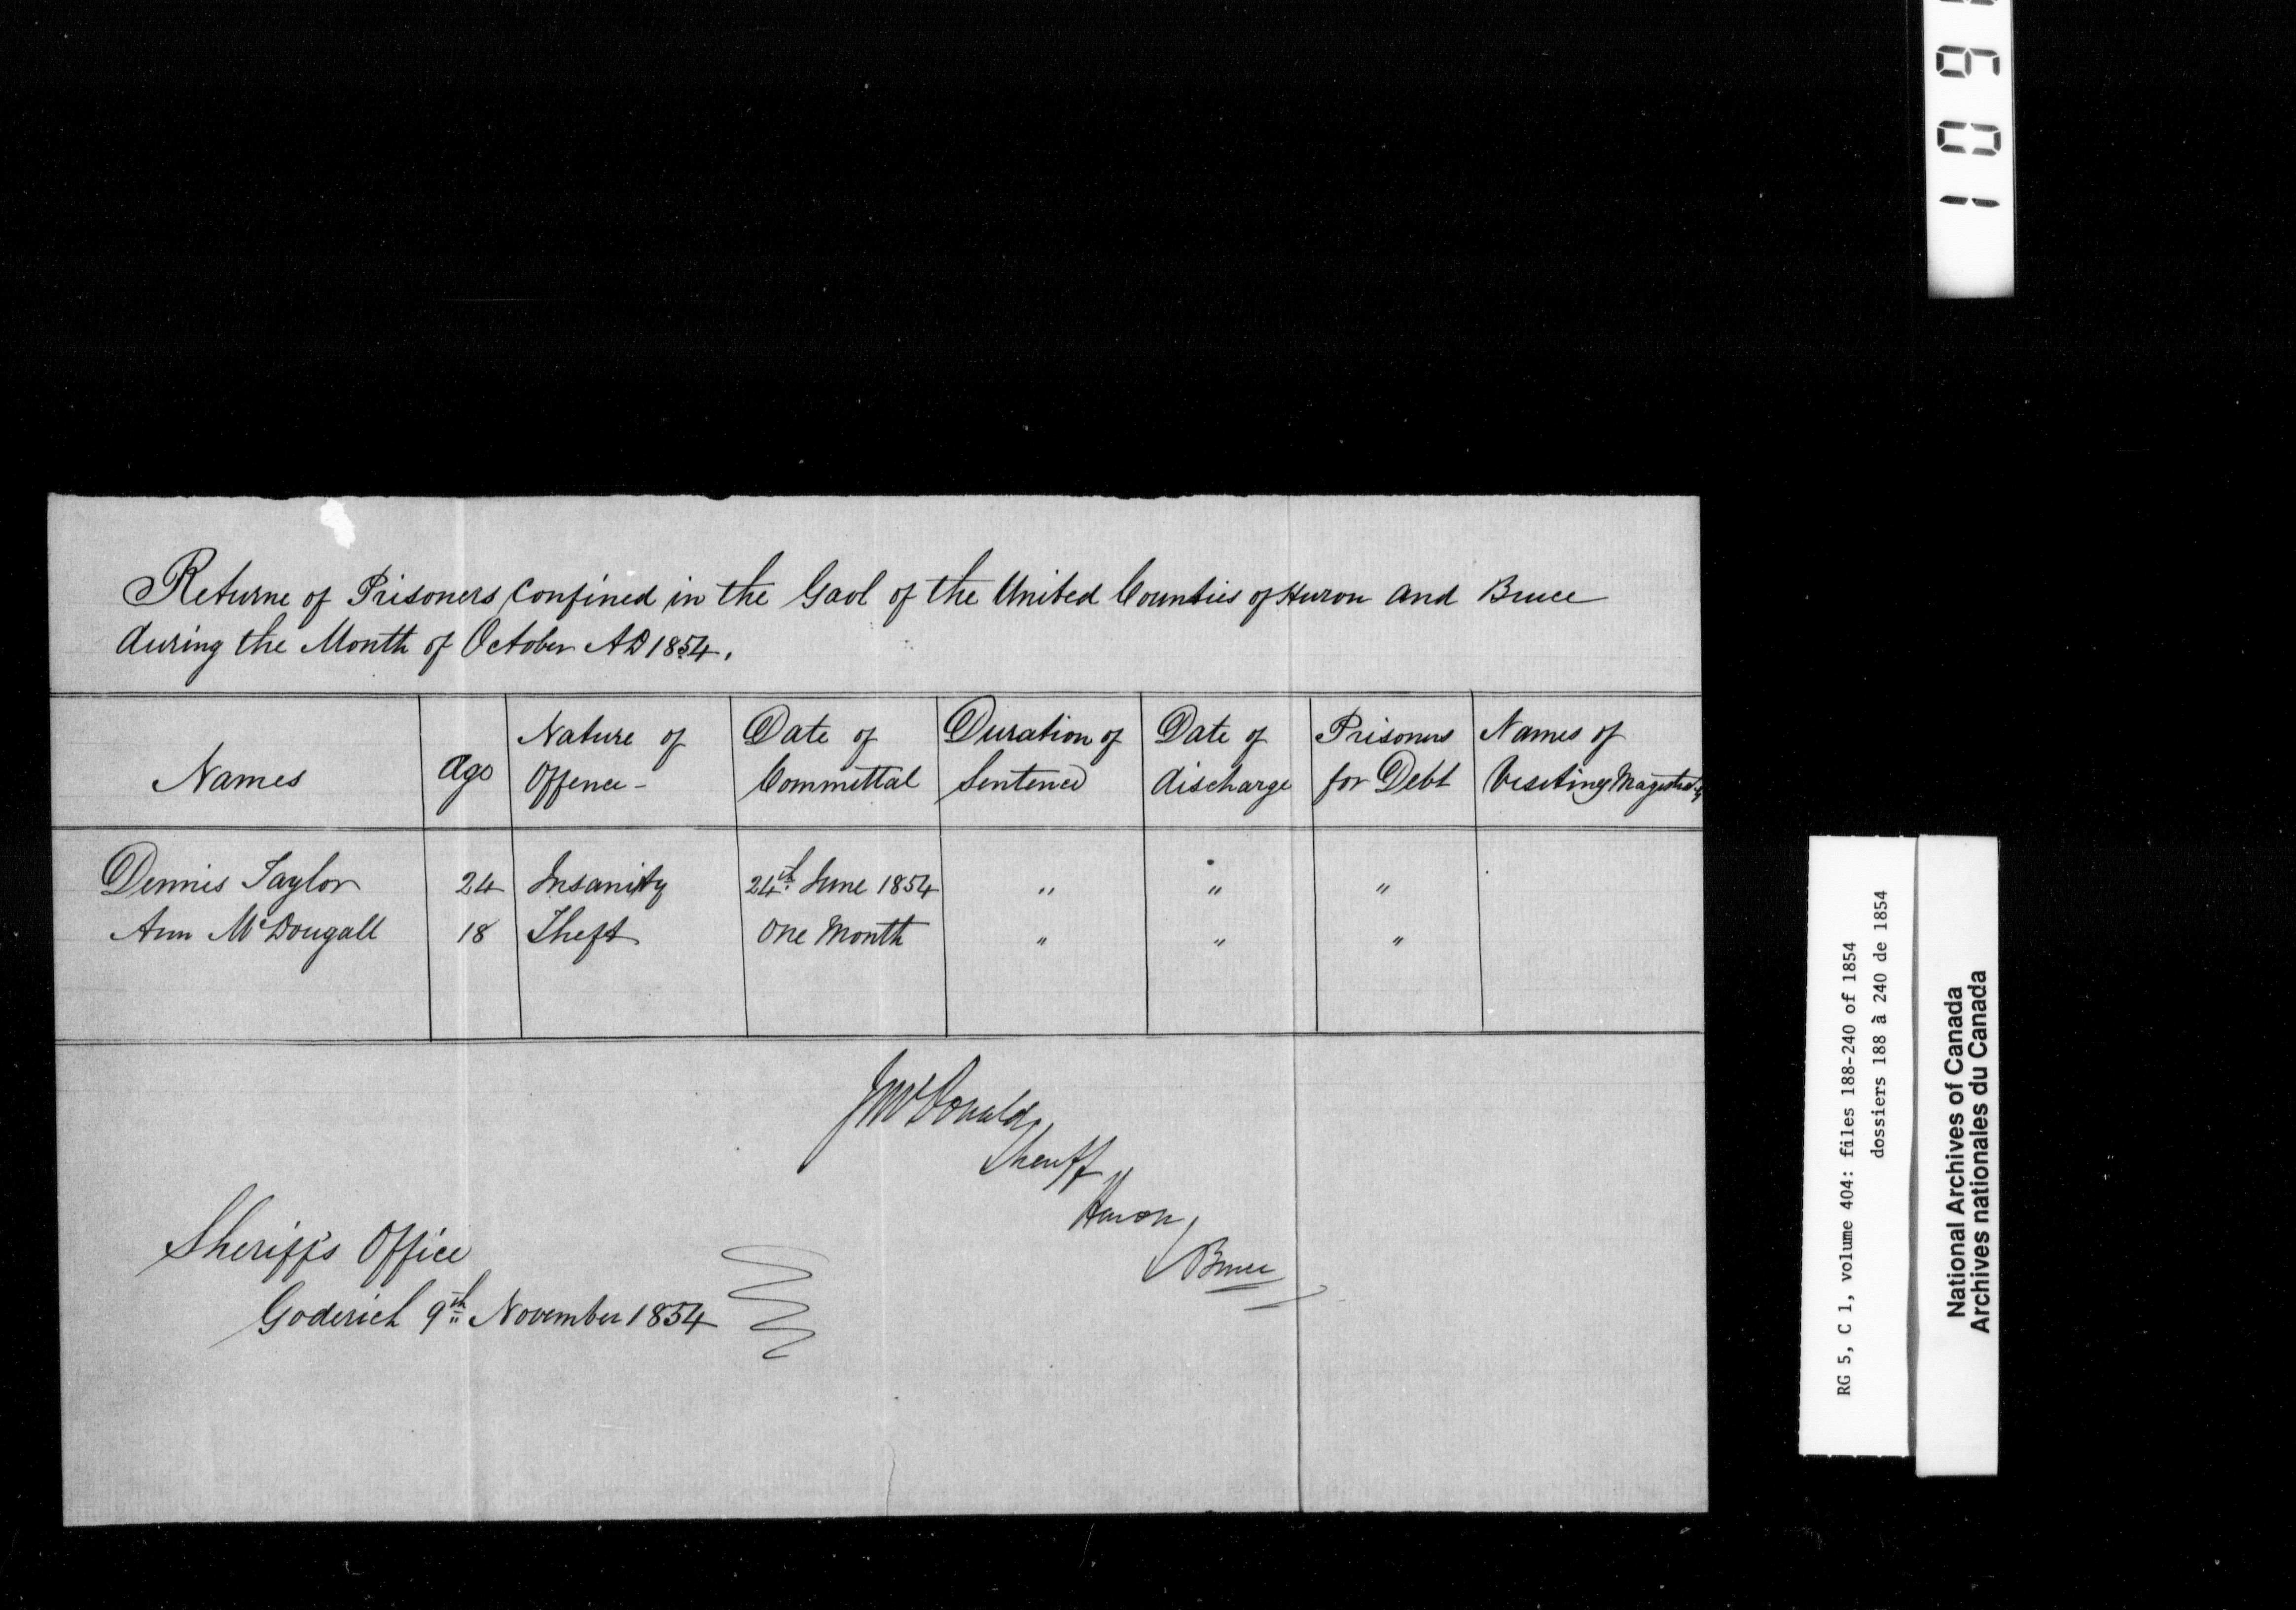 Returne of Prisoners Confined in the Gaol of the United Counties of Huron and Bruce
during the Month of October AD 1854.
Names | Age | Nature of Offence - | Date of Committal | Duration of Sentence | Date of discharge | Prisoners for Debt | Names of Visiting Magistrates
Dennis Taylor | 24 | Insanity | 24th June 1854 | " | " | "
Ann McDougall | 18 | Theft | One Month | " | " | "
J McDonald
Sheriff
Huron
Bruce
Sheriff's Office
Goderich 9th November 1854
RG 5, C 1, volume 404: files 188-240 of 1854
dossiers 188 à 240 de 1854
National Archives of Canada
Archives nationales du Canada